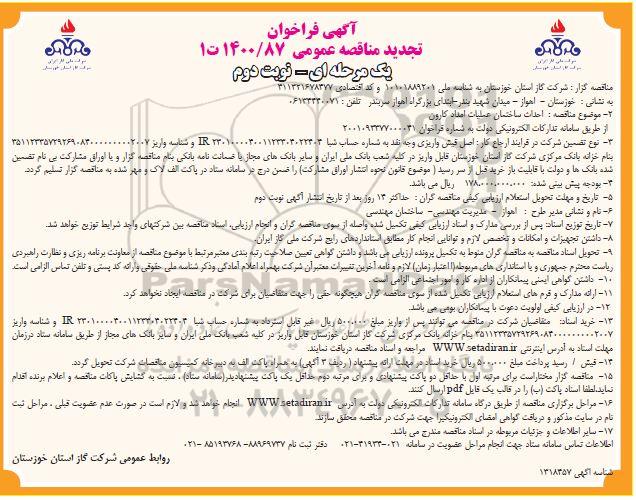 آگهی فراخوان
تجدید مناقصه عمومی ۱۴۰۰/۸۷ ت۱
یک مرحله ای- نوبت دوم
مناقصه گزار : شرکت گاز استان خوزستان به شناسه ملی ۱۰۱۰۱۸۸۹۲۰۱ و کد اقتصادی ۴۱۱۳۲۱۶۷۸۴۷۷
به نشانی : خوزستان - اهواز - میدان شهید بندر-ابتدای بزرگراه اهواز سربندر تلفن : ۰۶۱۳۴۴۴۰۰۷۱
۲- موضوع مناقصه : احداث ساختمان عملیات امداد کارون
از طریق سامانه تدارکات الکترونیکی دولت به شماره فراخوان ۲۰۰۱۰۹۳۴۷۷۰۰۰۰۴۱
۳- نوع تضمین شرکت در فرایند ارجاع کار : اصل فیش واریزی وجه نقد به شماره حساب شبا IR ۲۳۰۱۰۰۰۰۴۰۰۱۱۲۳۴۰۴۰۲۲۴۰۴ و شناسه واریز ۳۵۱۱۲۳۳۵۷۲۹۲۶۹۰۸۴۰۰۰۰۰۰۰۰۰۲۰۰۷
بنام خزانه بانک مرکزی شرکت گاز استان خوزستان قابل واریز در کلیه شعب بانک ملی ایران و سایر بانک های مجاز یا ضمانت نامه بانکی بنام مناقصه گزار و یا اوراق مشارکت بی نام تضمین
شده بانک ها و دولت با قابلیت باز خرید قبل از سر رسید ( موضوع قانون نحوه انتشار اوراق مشارکت) را ضمن درج در سامانه ستاد در پاکت الف لاک و مهر شده به مناقصه گزار تسلیم گردد.
۴- بودجه پیش بینی شده: ۱۷۸.۰۰۰.۰۰۰.۰۰۰ ریال می باشد.
۵- تاریخ و مهلت تحویل استعلام ارزیابی کیفی مناقصه گران : حداکثر ۱۴ روز بعد از تاریخ انتشار آگهی نوبت دوم
۶- نام و نشانی مدیر طرح : اهواز - مدیریت مهندسی- ساختمان مهندسی
۷- تاریخ توزیع اسناد: پس از بررسی مدارک و اسناد ارزیابی کیفی تکمیل شده واصله از سوی مناقصه گران و انجام ارزیابی، اسناد مناقصه بین شرکتهای واجد شرایط توزیع خواهد شد.
۸- داشتن تجهیزات و امکانات و تخصص لازم و توانایی انجام کار مطابق استانداردهای رایج شرکت ملی گاز ایران.
۹- تحویل اسناد مناقصه به مناقصه گران منوط به تکمیل پرونده ارزیابی می باشد و داشتن گواهی تعیین صلاحیت رتبه بندی معتبر مرتبط با موضوع مناقصه از معاونت برنامه ریزی و نظارت راهبردی
ریاست محترم جمهوری و یا استانداری های مربوطه(اعتبار زمان) لازم و نامه آخرین تغییرات معتبر آن شرکت بهمراه اعلام آمادگی وذکر شناسه ملی حقوقی وارائه کد پستی و تلفن تماس الزامی است.
۱۰- داشتن گواهی ایمنی پیمانکاران از اداره کار و امور اجتماعی الزامی است.
۱۱- ارائه مدارک و فرم های استعلام ارزیابی تکمیل شده از سوی مناقصه گران هیچگونه حقی را جهت متقاضیان برای شرکت در مناقصه ایجاد نخواهد کرد.
۱۲- در ارزیابی کیفی اولویت دعوت با پیمانکاران بومی می باشد.
۱۳- خرید اسناد: متقاضیان شرکت در مناقصه می توانند پس از واریز مبلغ ۵۰۰.۰۰۰ ریال غیر قابل استرداد به شماره حساب شبا IR ۲۳۰۱۰۰۰۰۴۰۰۱۱۲۳۴۰۴۰۲۲۴۰۴ و شناسه واریز
۳۵۱۱۲۳۳۵۷۲۹۲۶۹۰۸۴۰۰۰۰۰۰۰۰۰۲۰۰۷ بنام خزانه بانک مرکزی شرکت گاز استان خوزستان قابل واریز در کلیه شعب بانک ملی ایران و سایر بانک های مجاز از طریق سامانه ستاد در زمان
مهلت اسناد به آدرس اینترنتی WWW.setadiran.ir مراجعه و اسناد مناقصه دریافت نمایند.
۱۴- فیش / رسید پرداخت مبلغ ۵۰۰.۰۰۰ ریال خرید اسناد در مهلت ارائه پیشنهاد ( ردیف ۳ آگهی) به همراه پاکت الف به دبیرخانه کمیسیون مناقصات شرکت تحویل گردد.
۱۵- مناقصه گزار مختار است برای مرتبه اول با حداقل دو پاکت پیشنهادی و برای مرتبه دوم حداقل یک پاکت پیشنهادید(سامانه ستاد) ، نسبت به گشایش پاکات مناقصه و اعلام برنده اقدام
نماید.لطفا اسناد پاکت (ب) را در قالب یک فایل pdf ارسال کنند.
۱۶- مراحل برگزاری مناقصه از طریق درگاه سامانه تدارکات الکترونیکی دولت به آدرس WWW.setadiran.ir انجام خواهد شد و لازم است در صورت عدم عضویت قبلی ، مراحل ثبت
نام در سایت مذکور و دریافت گواهی امضای الکترونیکی را جهت شرکت در مناقصه محقق سازند.
۱۷- سایر اطلاعات و جزئیات مربوطه در اسناد مناقصه مندرج می باشد.
اطلاعات تماس سامانه ستاد جهت انجام مراحل عضویت در سامانه ۰۲۱-۴۱۹۳۴-۰۲۱ دفتر ثبت نام ۸۸۹۶۹۷۳۷- ۸۵۱۹۳۷۶۸ -۰۲۱
روابط عمومی شرکت گاز استان خوزستان
شناسه آگهی ۱۳۱۸۴۵۷